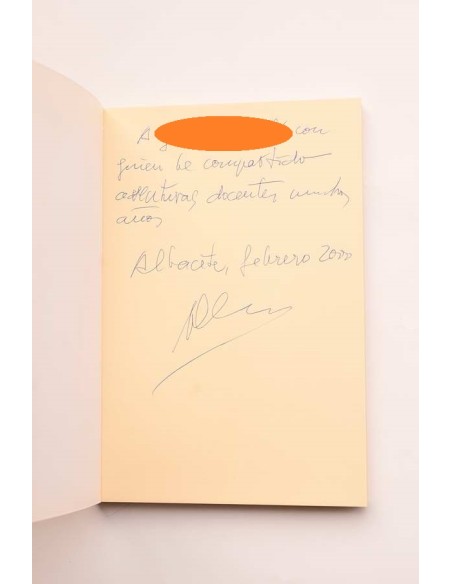 A con
quien he compartido
aventuras docentes muchos
años
Albacete, febrero 2000